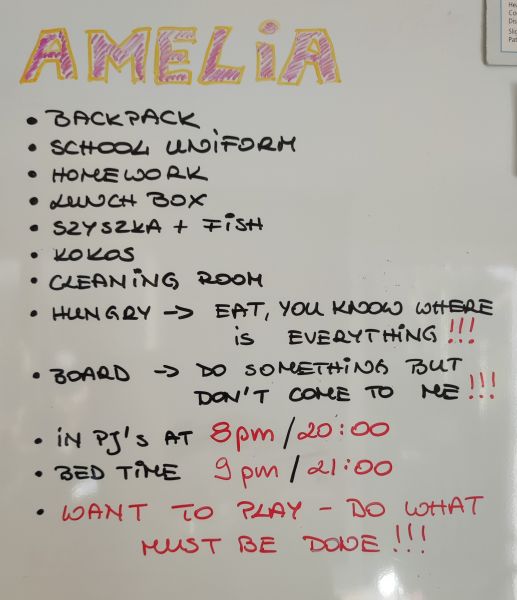 AMELiA
• BACKPACK
• SCHOOL UNiFORM
• HOMEWORK
• LUNCH BOX
• SZYSZKA + FiSH
• KOKOS
• CLEANiNG ROOM
• HUNGRY → EAT, YOU KNOW WHERE
iS EVERYTHiNG!!!
• BOARD → DO SOMETHiNG BUT
DON'T COME TO ME!!!
• iN PJ'S AT 8pm/20:00
• BED TiME 9pm/21:00
• WANT TO PLAY - DO WHAT
MUST BE DONE!!!